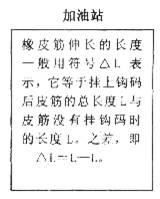 加油站
橡皮筋伸长的长度
一般用符号△L 表
示，它等于挂上钩码
后皮筋的总长度L与
皮筋没有挂钩码时
的长度L。之差，即
△L=L—L。